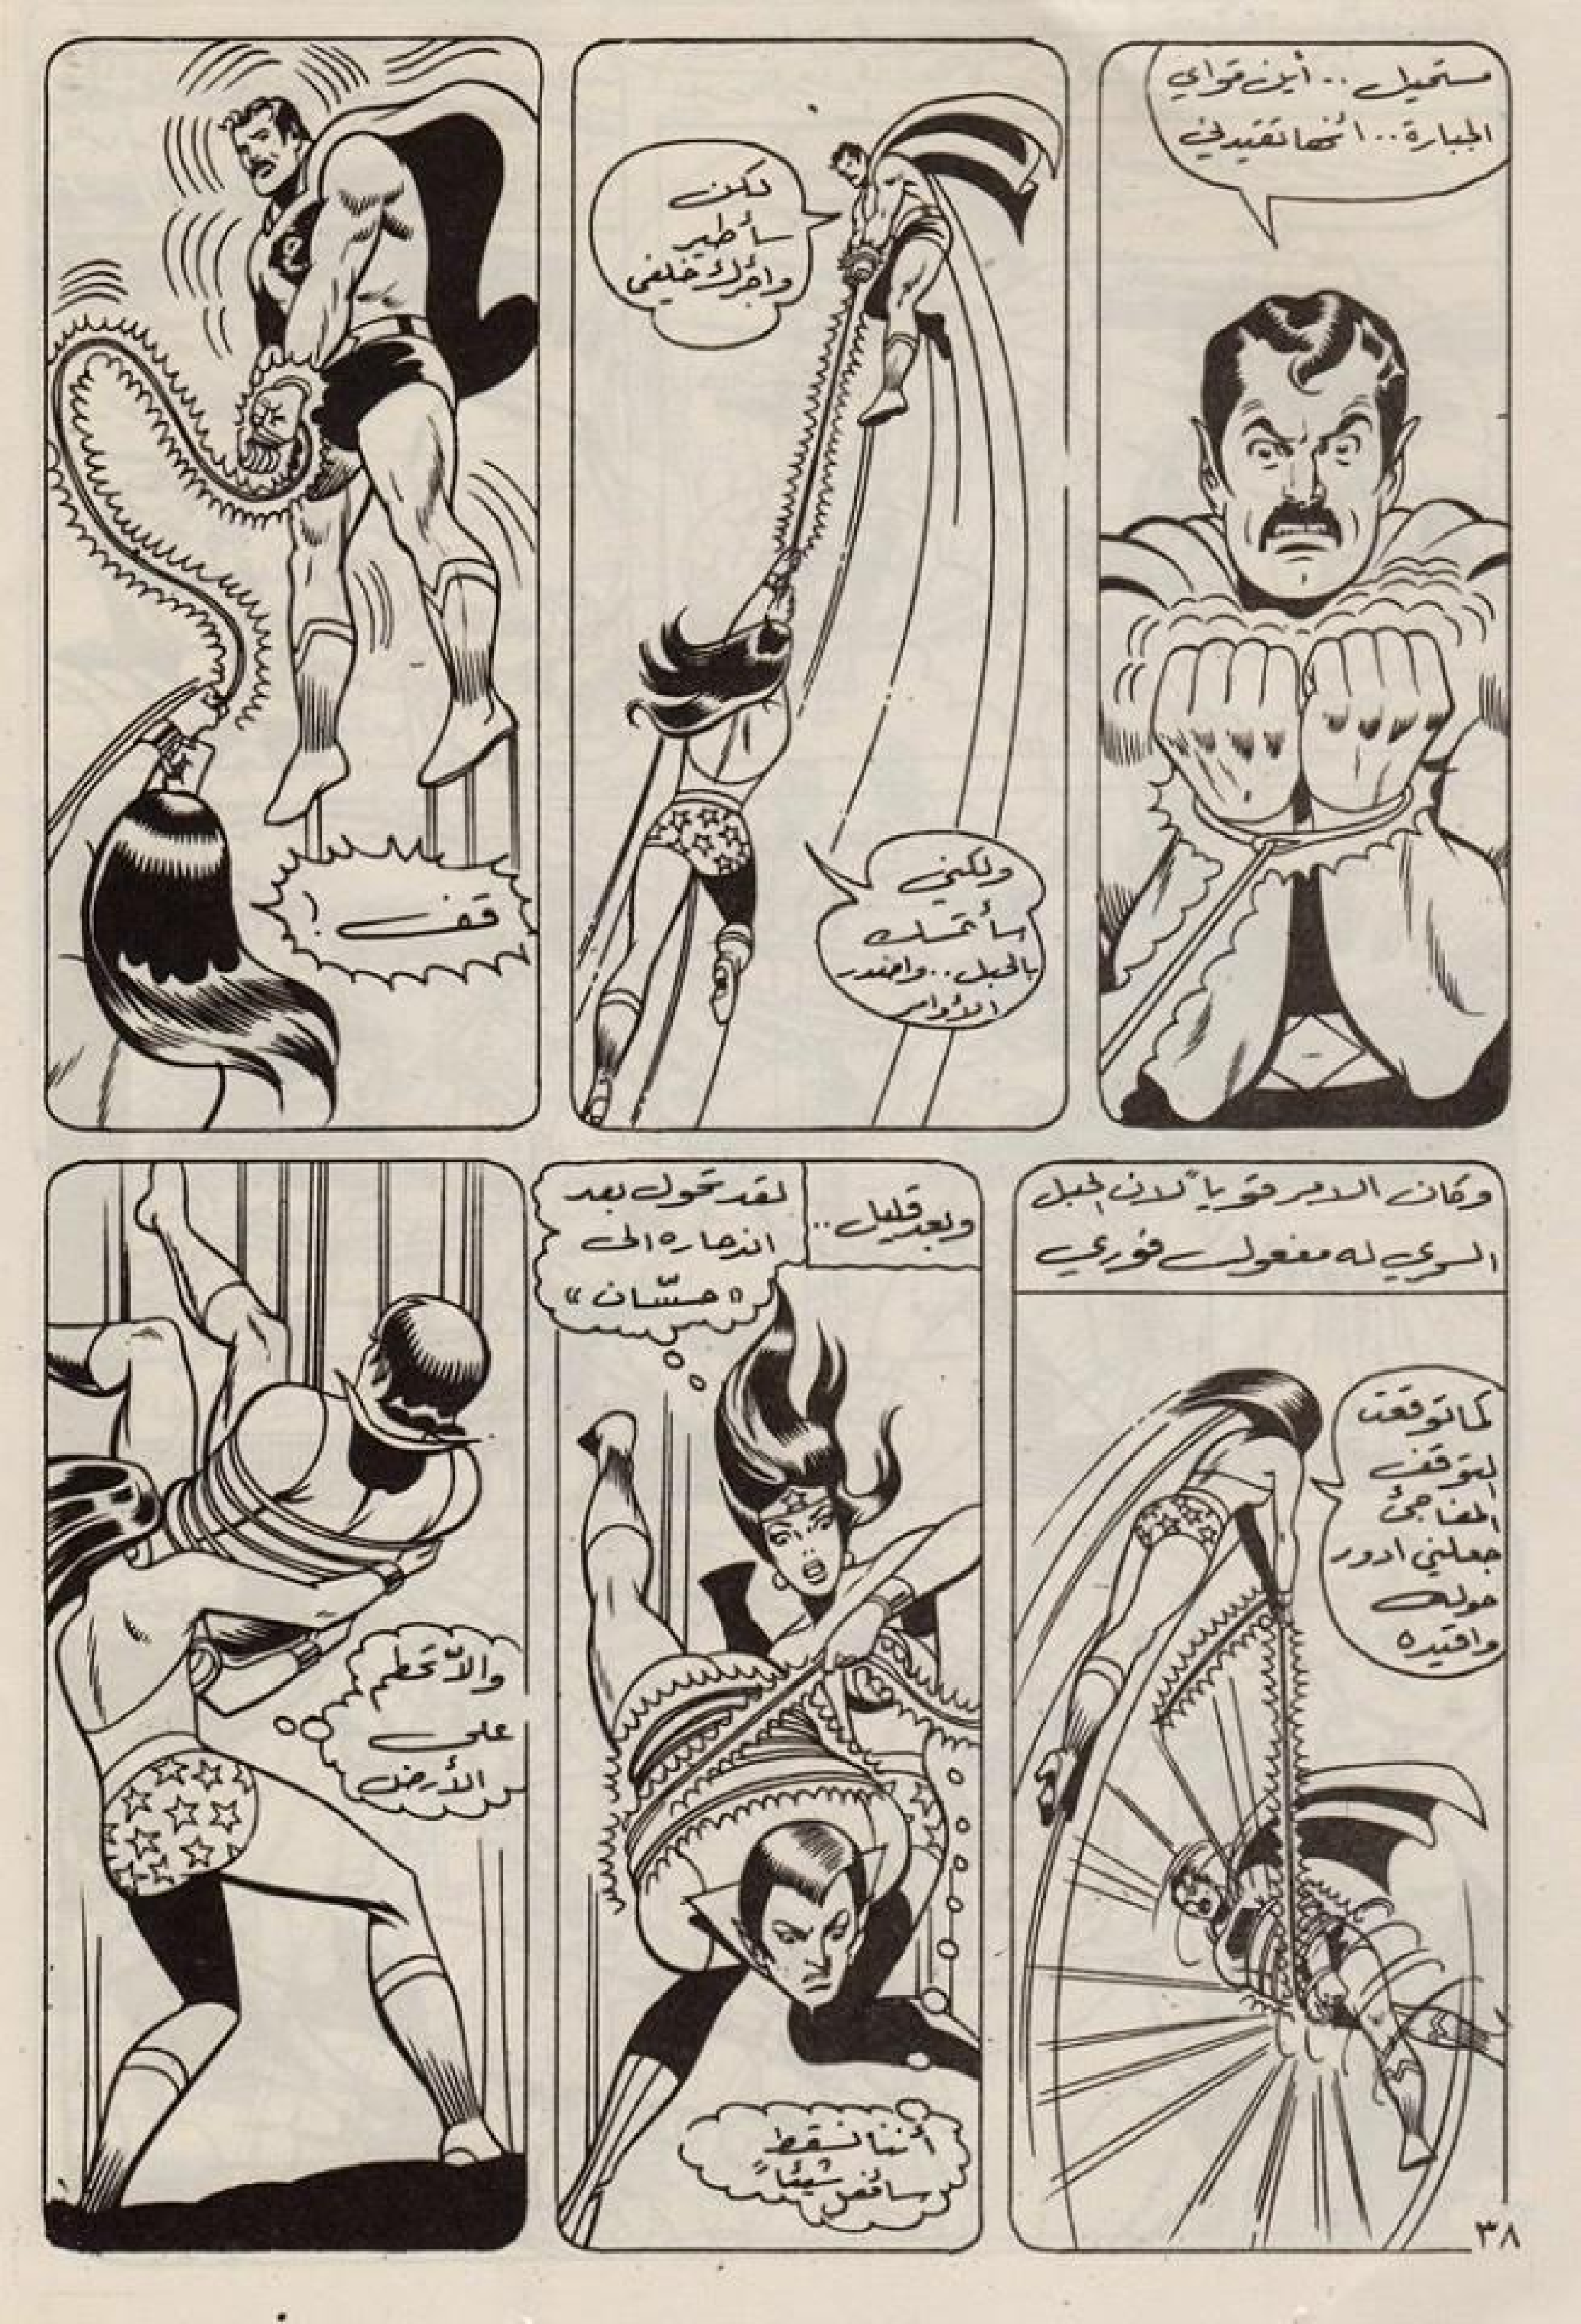 مستحيل .. أين قواي
الجبارة .. انها تقيدني
لكن
سأطير
وأجرك خلفي
ولكني
سأتمسك
بالحبل .. واصدر
الأوامر
قف !
وكان الامر قويا" لان الحبل
السحري له مفعول فوري
كما توقعت
التوقف
المفاجئ
جعلني ادور
حوله
واقيده
وبعد قليل ..
لقد تحول بعد
اندحاره الى
"حسّان"
أننا نسقط
سأفعل شيئا"
والاّ تحطم
على
الأرض
٣٨